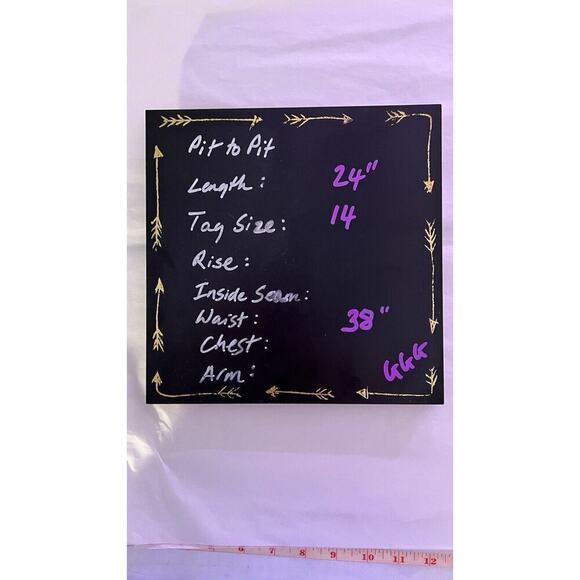 Pit to Pit
Length: 24"
Tag Size: 14
Rise:
Inside Seam:
Waist: 38"
Chest:
Arm: GGG
6 7 8 9 10 11 12